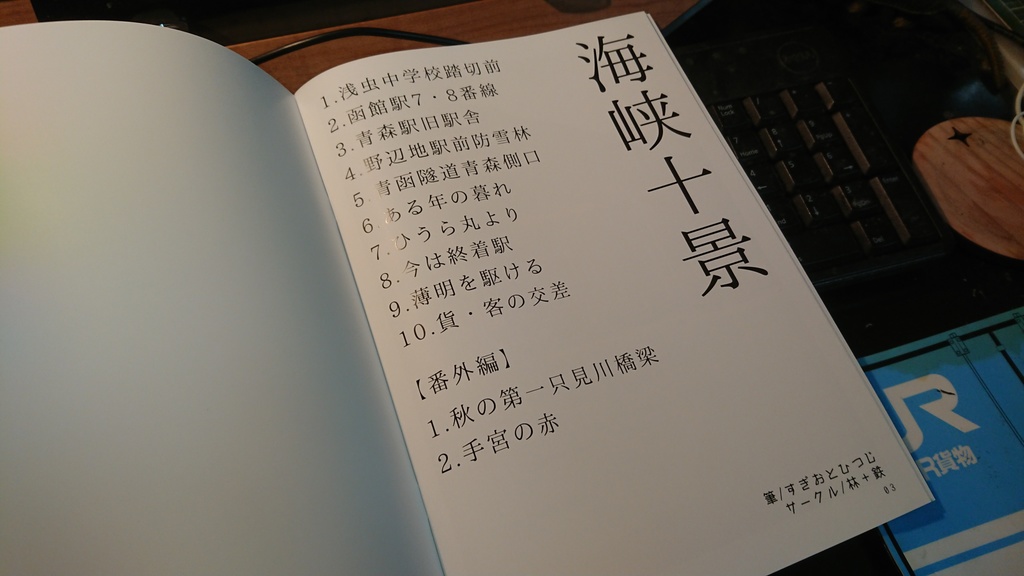 海峡十景
1.浅虫中学校踏切前
2.函館駅7・8番線
3.青森駅旧駅舎
4.野辺地駅前防雪林
5.青函隧道青森側口
6.ある年の暮れ
7.ひうら丸より
8.今は終着駅
9.薄明を駆ける
10.貨・客の交差
【番外編】
1.秋の第一只見川橋梁
2.手宮の赤
筆/すぎおとひつじ
サークル/林+鉄
03
JR
JR貨物